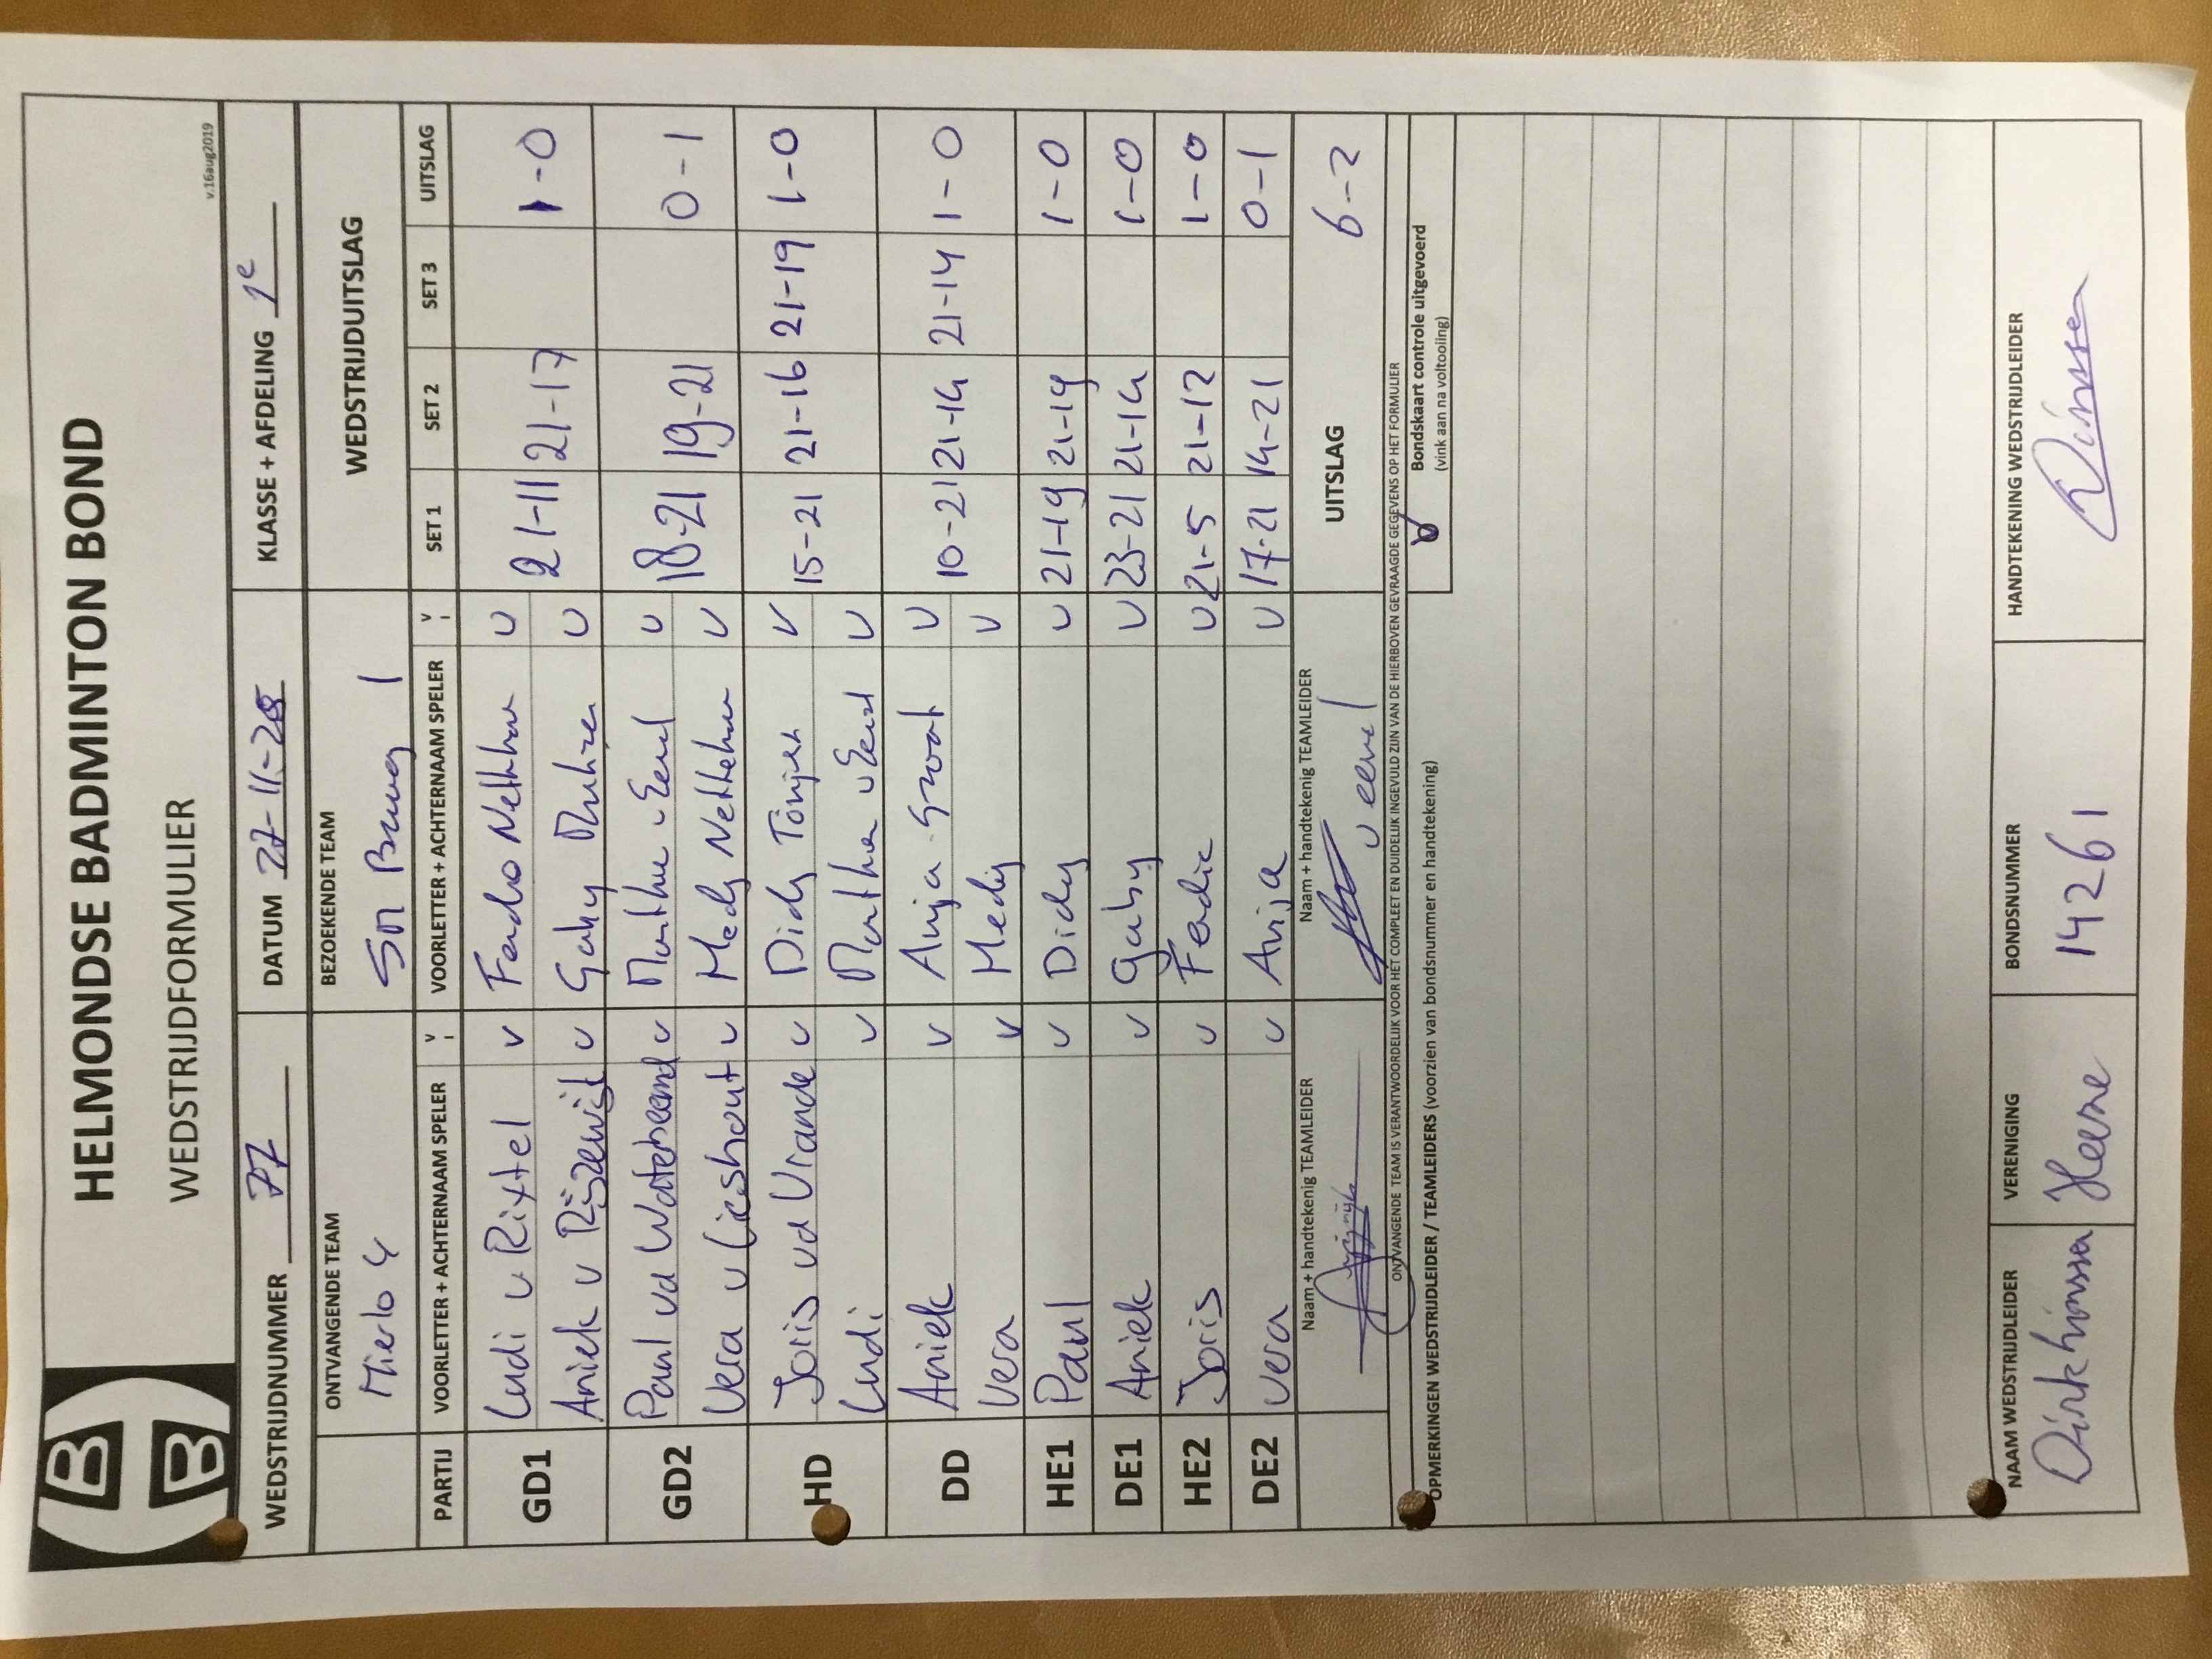 HELMONDSE BADMINTON BOND
WEDSTRIJDFORMULIER
v.16aug2019
WEDSTRIJDNUMMER 77 DATUM 27-11- KLASSE + AFDELING 1e
ONTVANGENDE TEAM BEZOEKENDE TEAM WEDSTRIJDUITSLAG
Mierlo 4 1
PARTIJ VOORLETTER + ACHTERNAAM SPELER v VOORLETTER + ACHTERNAAM SPELER v SET 1 SET 2 SET 3 UITSLAG
GD1 Ludi v Rixtel v v 21-11 21-17 1-0
Aniek v Rijzewijk v Gaby v
GD2 Paul vd v v 18-21 19-21 0-1
Vera v Lieshout v Medy v
HD Joris vd Vrande v Didy Tönjes v 15-21 21-16 21-19 1-0
Ludi v v
DD Aniek v Anja Groot v 10-21 21-14 21-14 1-0
Vera v Medy v
HE1 Paul v Didy v 21-19 21-19 1-0
DE1 Aniek v Gaby v 23-21 21-14 1-0
HE2 Joris v v 21-5 21-12 1-0
DE2 Vera v Anja v 17-21 14-21 0-1
Naam + handtekenig TEAMLEIDER Naam + handtekenig TEAMLEIDER UITSLAG 6-2
ONTVANGENDE TEAM IS VERANTWOORDELIJK VOOR HET COMPLEET EN DUIDELIJK INGEVULD ZIJN VAN DE HIERBOVEN GEVRAAGDE GEGEVENS OP HET FORMULIER
Bondskaart controle uitgevoerd
(vink aan na voltooiing)
OPMERKINGEN WEDSTRIJDLEIDER / TEAMLEIDERS (voorzien van bondsnummer en handtekening)
NAAM WEDSTRIJDLEIDER VERENIGING BONDSNUMMER HANDTEKENING WEDSTRIJDLEIDER
14261